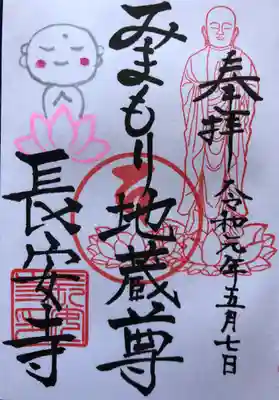 奉拝 令和元年五月七日
みまもり地蔵尊
長安寺